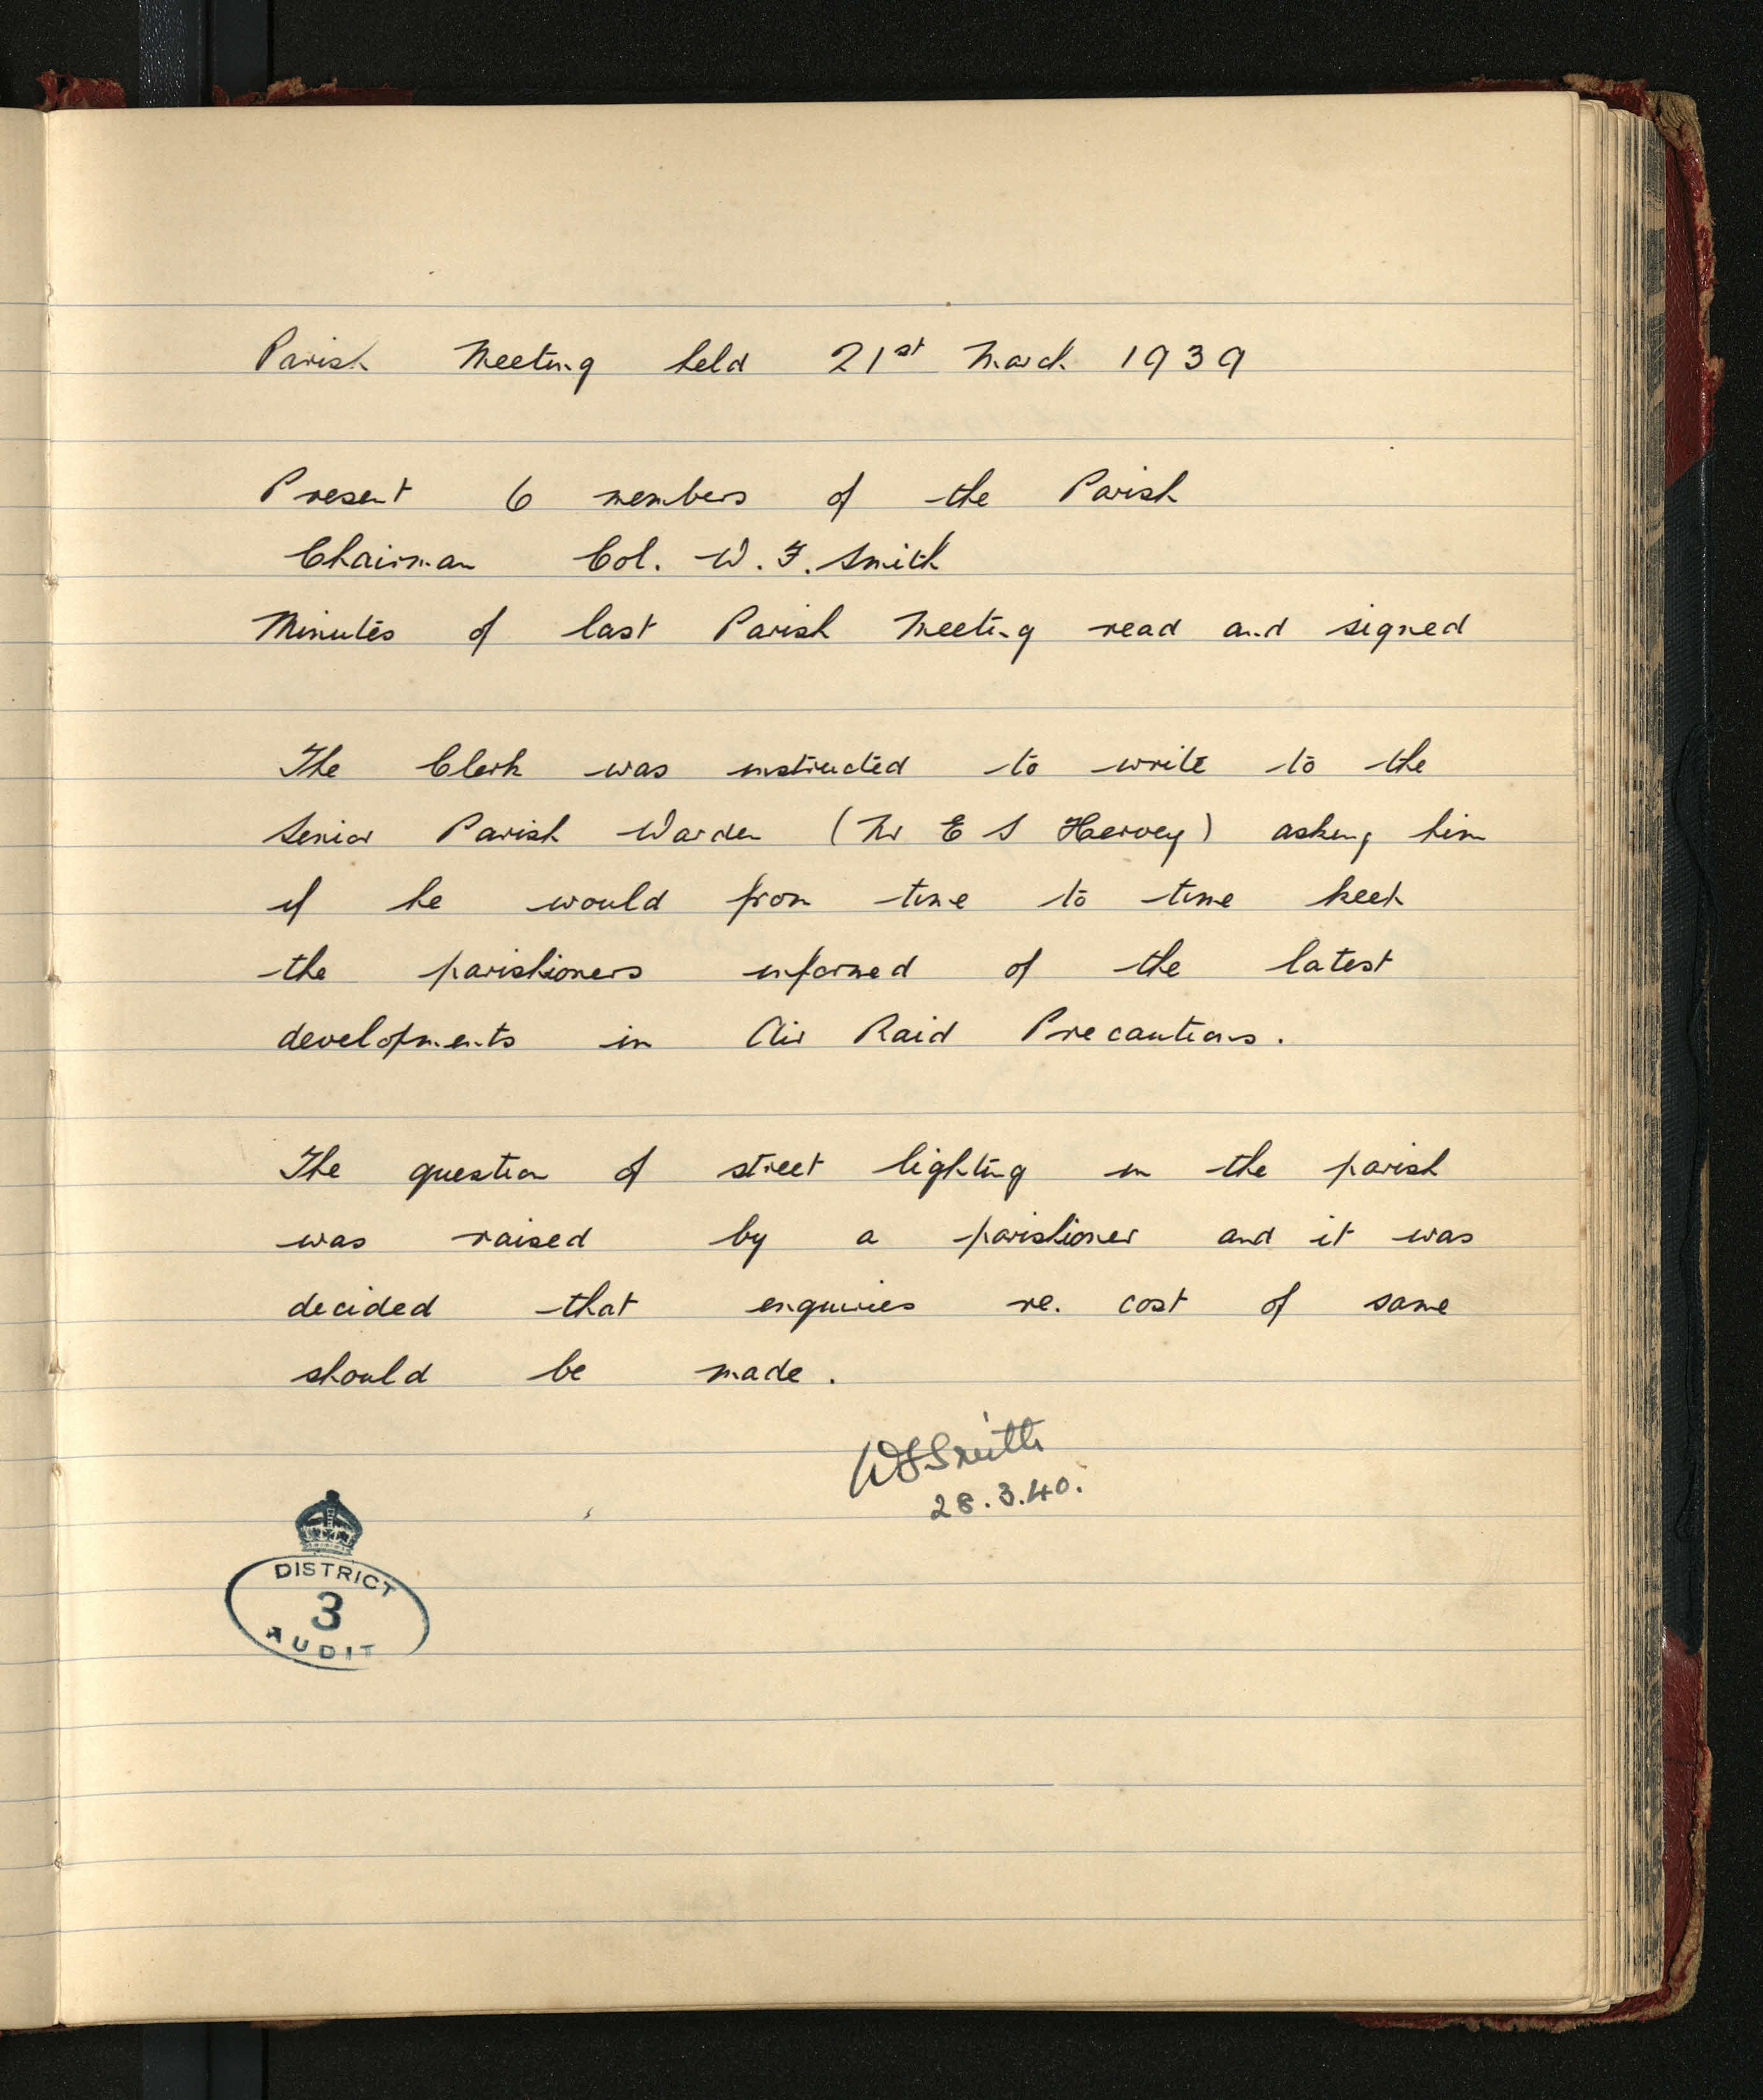 Parish Meeting held 21st March 1939
Present 6 members of the Parish
Chairman Col. W. F. Smith
Minutes of last Parish Meeting read and signed
The Clerk was instructed to write to the
Senior Parish Warden (Mr E S Hervey) asking him
if he would from time to time keep
the parishioners informed of the latest
developments in Air Raid Precautions.
The question of street lighting in the parish
was raised by a parishioner and it was
decided that enquiries re. cost of same
should be made.
WFSmith
28.3.40.
DISTRICT
3
AUDIT